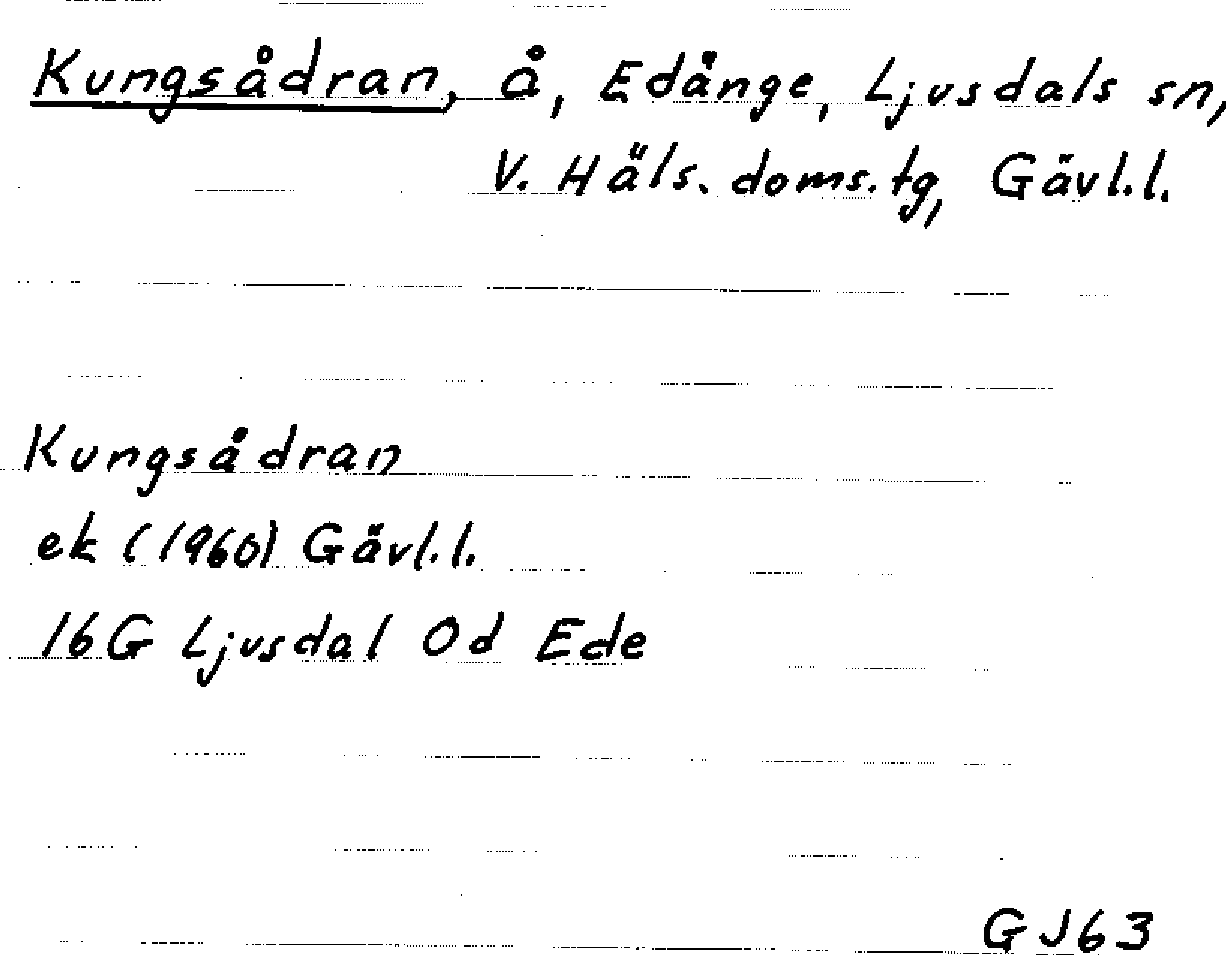 Kungsådran, å, Edånge, Ljusdals sn,
V. Häls. doms. tg, Gävl.l.
Kungsådran
ek (1960) Gävl.l.
16G Ljusdal 0d Ede
GJ63